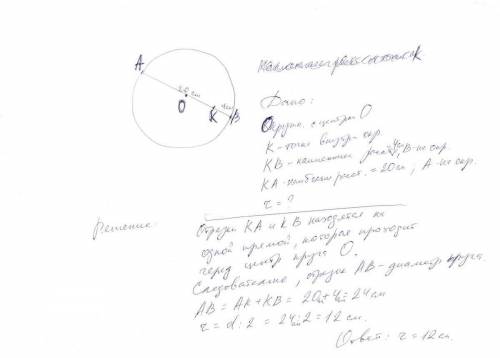 А
20 см
О
К
4см
В
Дано:
Окружн. с центром О
К - точка внутри окр.
КВ - наименьшее расст. 4см, В - на окр.
КА - наибольш расст. = 20см; А - на окр.
r = ?
Решение:
Отрезки КА и КВ находятся на
одной прямой, которая проходит
через центр круга О.
Следовательно, отрезок АВ - диаметр круга.
АВ = АК + КВ = 20см + 4см = 24 см
r = d : 2 = 24см : 2 = 12 см.
Ответ: r = 12 см.